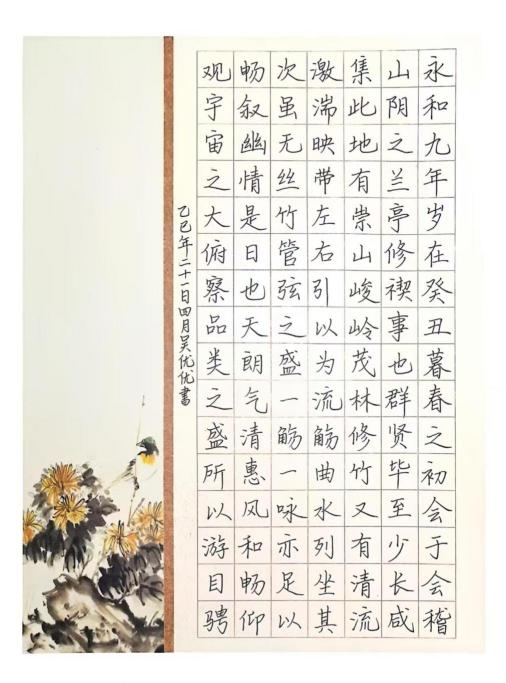 永和九年岁在癸丑暮春之初会于会稽
山阴之兰亭修禊事也群贤毕至少长咸
集此地有崇山峻岭茂林修竹又有清流
激湍映带左右引以为流觞曲水列坐其
次虽无丝竹管弦之盛一觞一咏亦足以
畅叙幽情是日也天朗气清惠风和畅仰
观宇宙之大俯察品类之盛所以游目骋
乙巳年二十一日四月吴优优書